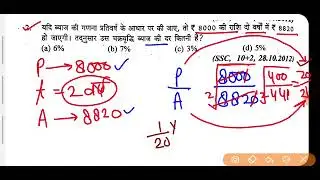 यदि ब्याज की गणना प्रतिवर्ष के आधार पर की जाए, तो ₹ 8000 की राशि दो वर्षों में ₹ 8820
हो जाएगी। तदनुसार उस चक्रवृद्धि ब्याज की दर कितनी है?
(a) 6% (b) 7% (c) 3% (d) 5%
(SSC, 10+2, 28.10.2012)
P → 8000
t = 2
A → 8820
P 8000 400 = 20
A 8820 441
1/20